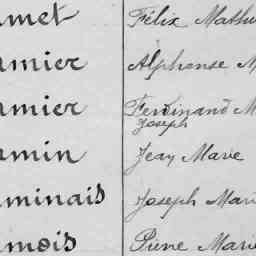 met Félix Mathu
mier Alphonse M
mier Ferdinand M
Joseph
min Jean Marie
minais Joseph Mari
mois Pierre Marie